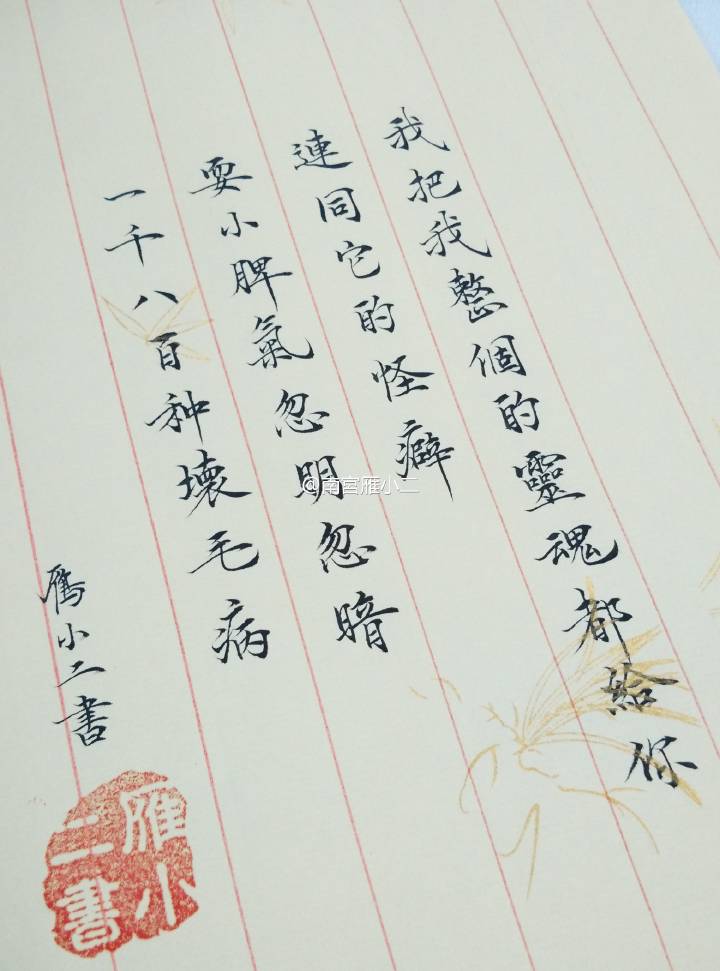 我把我整個的靈魂都給你
連同它的怪癖
耍小脾氣忽明忽暗
一千八百种壞毛病
雁小二書
雁小二書
@南宫雁小二